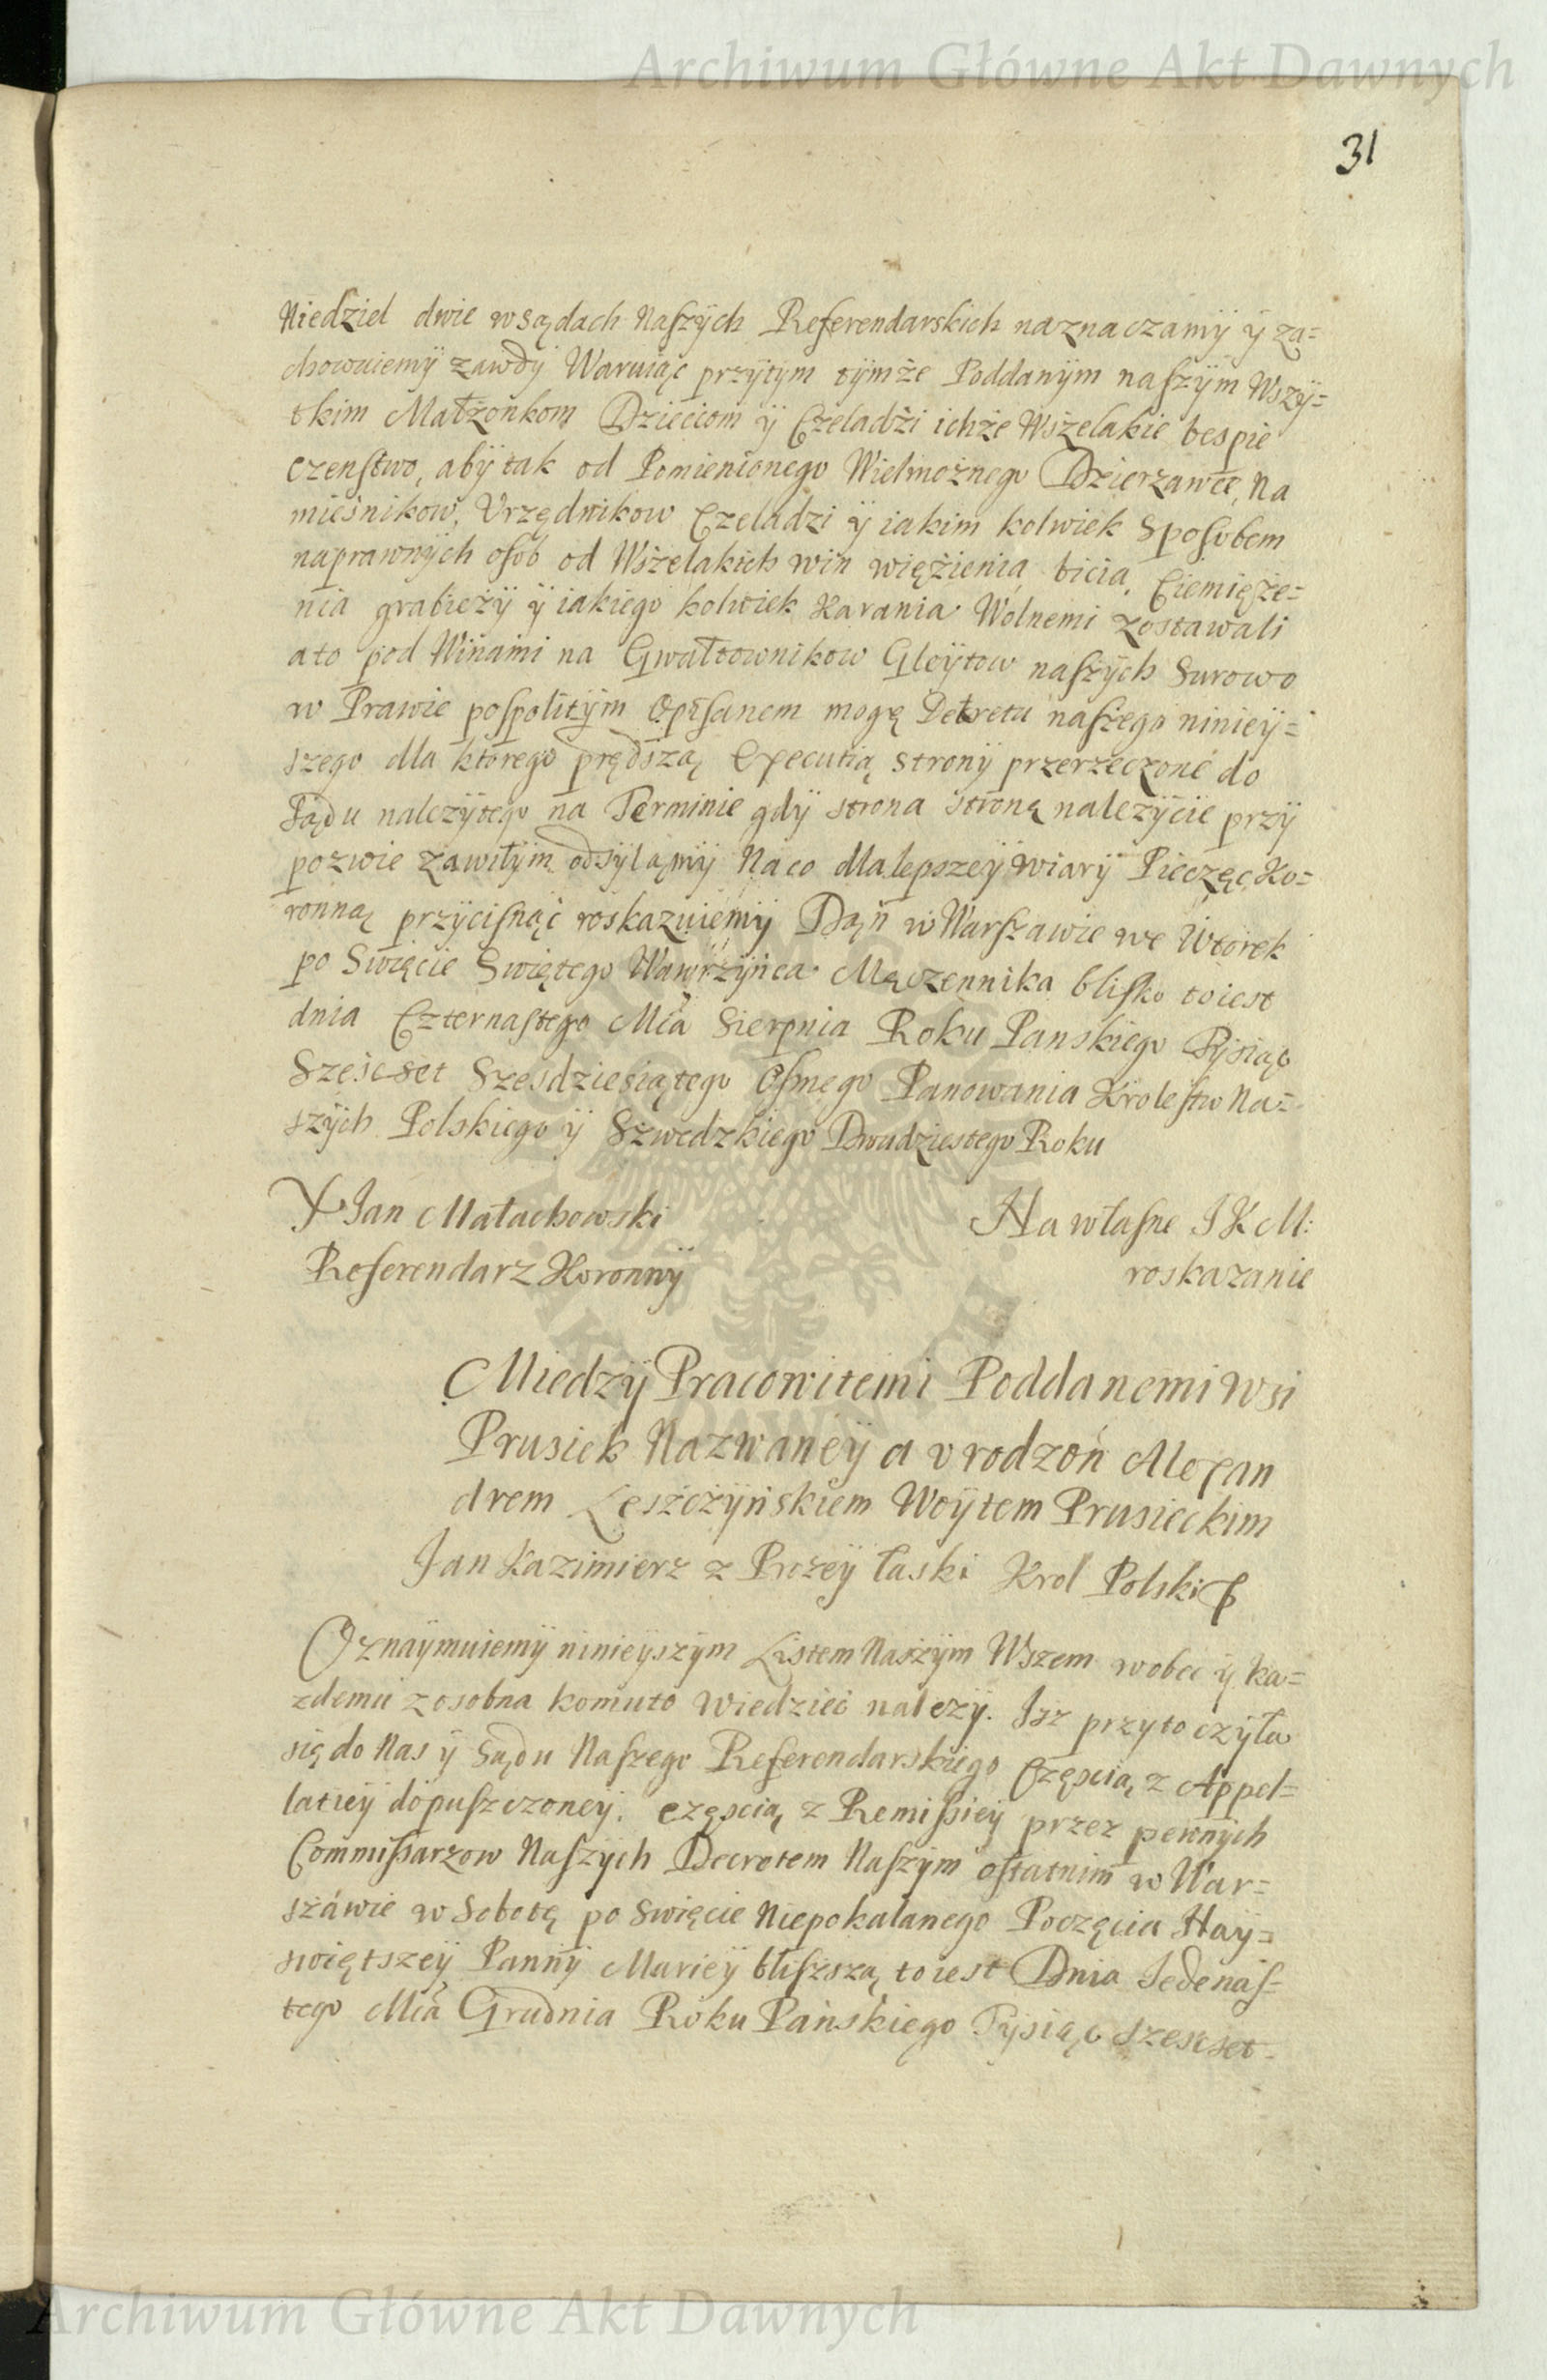 Archiwum Główne Akt Dawnych
31
Niedziel dwie w sądach Naszÿch Referendarskich naznaczamÿ ÿ za=
chowuiemÿ zawdÿ Waruiąc przÿtÿm tÿmże Poddanÿm naszÿm Wszÿ=
tkim Małżonkom Dzieciom ÿ Czeladźi ichże Wszelakie bespie
czenstwo, abÿ tak od Pomienionego Wielmożnego Dzierzawce, Na
miesnikow, Vrzędnikow Czeladzi ÿ iakim kolwiek Sposobem
naprawnÿch osób od Wszelakich win więżienia bicia, Ciemięże=
nia grabieżÿ ÿ iakiego kolwiek Karania Wolnemi zostawali
a to pod Winami na Gwałtownikow Gleÿtow naszÿch Surowo
w Prawie pospolitÿm Opisanem mogę Dekretu naszego nînieÿ=
szego dla ktorego prędszą Executią stronÿ przerzeczone do
Sądu należÿtego na Terminie gdÿ strona stroną należÿcie przÿ
pozwie zawitÿm odsÿlamÿ Na co dla lepszeÿ wiarÿ Pieczęc Ko=
ronną przÿcisnąć roskazuiemÿ Dąn w Warszawie we Wtorek
po Swięcie Swiętego Wawrzÿnca Męczennika blisko to iest
dnia Czternastego Mca Sierpnia Roku Panskiego Tÿsiąc
Szescset Szesdziesiątego Osmego Panowania Krolestw Na=
szÿch Polskiego ÿ Szwedzkiego Dwudziestego Roku
X Jan Małachowski
Referendarz Koronnÿ
Na własne J K M:
roskazanie
Miedzÿ Pracowitemi Poddanemi wsi
Prusiek Nazwaneÿ a vrodzon Alexan
drem Leszczÿńskiem Woÿtem Prusieckim
Jan Kazimierz z Bozeÿ łaski Krol Polski
Oznaÿmuiemÿ ninieÿszÿm Listem Naszÿm Wszem wobec ÿ ka=
zdemu zosobna komuto wiedzieć nalezÿ. Isz przytoczÿła
się do Nas ÿ Sądu Naszego Referendarskiego Częscią z Appel=
latieÿ dopuszczoneÿ. częscią z Remissieÿ przez pewnÿch
Commissarzow Naszÿch Decretem Naszÿm ostatnim w War=
száwie w Sobotę po Swięcie Niepokalanego Poczęcia Naÿ=
swiętszeÿ Pannÿ Marieÿ bliższą to iest Dnia Jedenas=
tego Mca Grudnia Roku Pańskiego Tÿsiąc szescset
Archiwum Główne Akt Dawnych